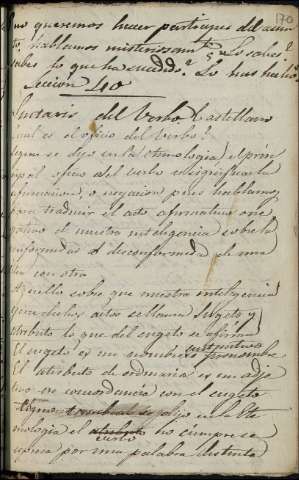 170
no queremos hacer partícipes del asun
to, hablamos misteriosam.te Lo sabes?
sabes lo que ha sucedido? Lo has
Leccion 40
Sintaxis del Verbo Castellano
Cual es el oficio del Verbo?
Segun se dijo en la etimología, el prin
cipal oficio del verbo es significar la
afirmacion, o negacion pues hablamos
para traducir el acto afirmativo o ne
gativo de nuestra inteligencia sobre la
conformidad o disconformidad de una
idea con otra
Aquello sobre que nuestra inteligencia
ejerce dichos actos se llama sugeto y
atributo lo que del sugeto se afirma
El sugeto es un nombre sustantivo o pronombre
El atributo de ordinario es un adje
tivo en concordancia con el sugeto
se dijo en la Eti
mología el atributo verbo no siempre se
expresa por una palabra distinta